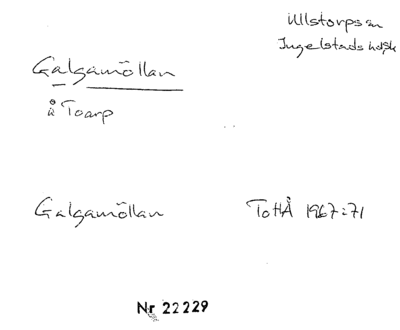 Ullstorps sn
Ingelstads hd, Sk
Galgamöllan
å Toarp
Galgamöllan ToHÅ 1967:71
Nr 22229